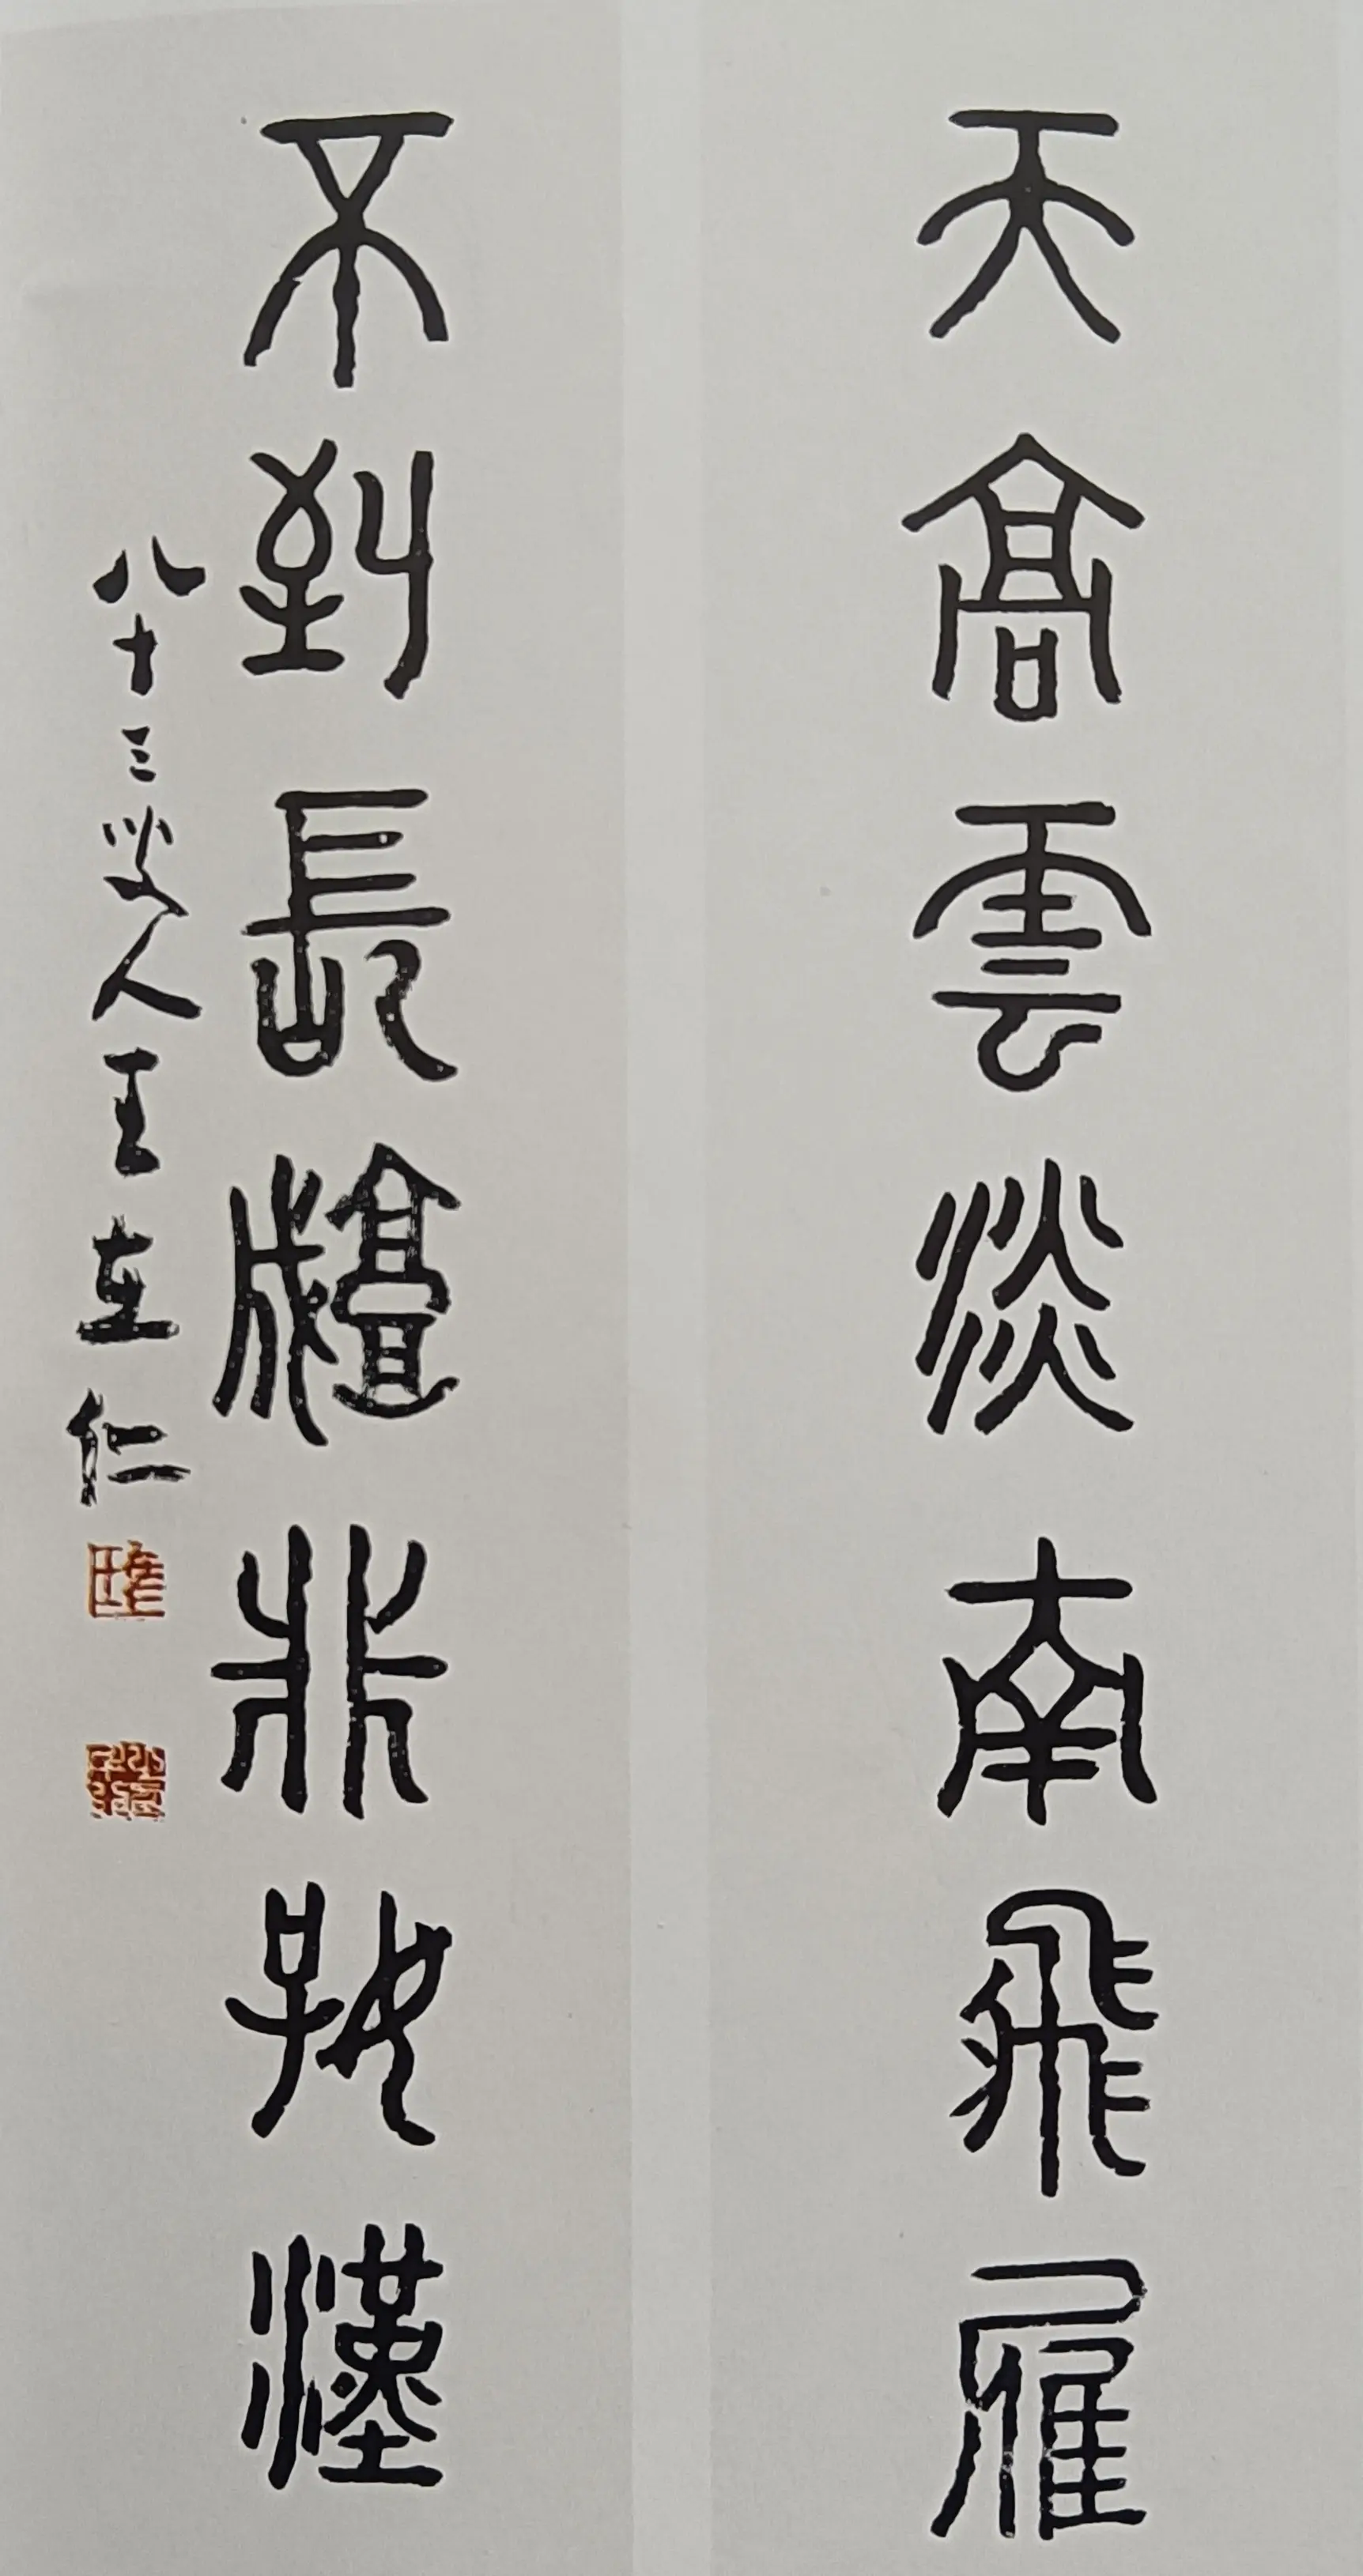 天高雲淡南飛雁
不到長城非好漢
八十三叟人王立仁